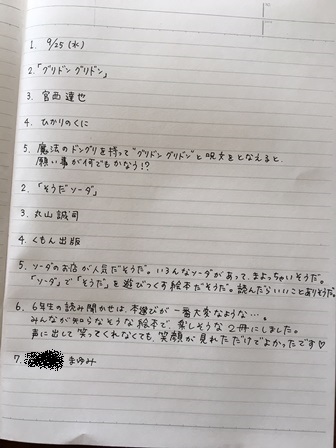 1. 9/25 (水)
2.「グリドングリドン」
3. 宮西達也
4. ひかりのくに
5. 魔法のドングリを持って"グリドングリドン"と呪文をとなえると、
願い事が何でもかなう!?
2.「そうだソーダ」
3. 丸山誠司
4. くもん出版
5. ソーダのお店が人気だそうだ。いろんなソーダがあって、まよっちゃいそうだ。
「ソーダ」で「そうだ」を遊びつくす絵本だそうだ。読んだらいいことありそうだ
6. 6年生の読み聞かせは、本選びが一番大変なような…。
みんなが知らなそうな絵本で、楽しそうな2冊にしました。
声に出して笑ってくれなくても、笑顔が見れただけでよかったです♡
7. まゆみ